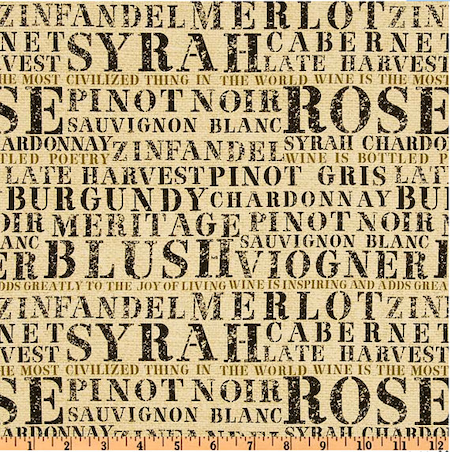 ZINFANDEL MERLOT ZINF
NET SYRAH CABERNET
RVEST LATE HARVEST
HE MOST CIVILIZED THING IN THE WORLD WINE IS THE MOST
SE PINOT NOIR ROSE
SAUVIGNON BLANC
HARDONNAY ZINFANDEL SYRAH CHARDON
TLED POETRY WINE IS BOTTLED P
LATE HARVEST PINOT GRIS LATE
BURGUNDY CHARDONNAY BU
OIR MERITAGE PINOT NOIR
ANC SAUVIGNON BLANC
ER BLUSH VIOGNER B
DDS GREATLY TO THE JOY OF LIVING WINE IS INSPIRING AND ADDS GREAT
ZINFANDEL MERLOT ZINF
NET SYRAH CABERNET
RVEST LATE HARVEST
HE MOST CIVILIZED THING IN THE WORLD WINE IS THE MOST
SE PINOT NOIR ROSE
SAUVIGNON BLANC
ARDONNAY SYRAH CHARDON
1 2 3 4 5 6 7 8 9 10 11 12